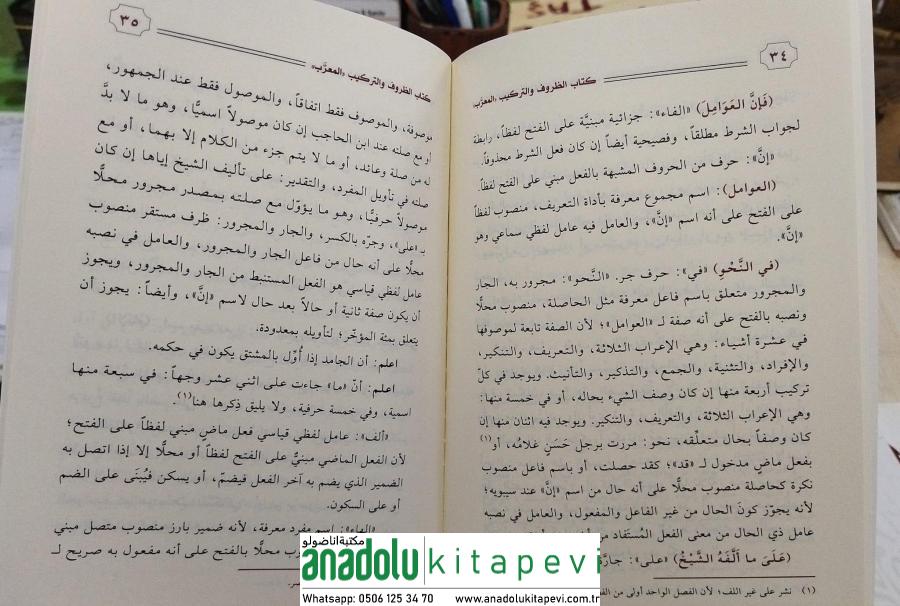 ٣٤
كتاب الظروف والتركيب «المعرَّب»
(فَإِنَّ العَوَامِلَ) «الفاء»: جزائية مبنيَّة على الفتح لفظاً، رابطة
لجواب الشرط مطلقاً، وفصيحية أيضاً إن كان فعل الشرط محذوفاً.
«إنَّ»: حرف من الحروف المشبهة بالفعل مبني على الفتح لفظاً.
(العوامل): اسم مجموع معرفة بأداة التعريف، منصوب لفظاً
على الفتح على أنه اسم «إنَّ»، والعامل فيه عامل لفظي سماعي وهو
«إنَّ».
(في النَّحْوِ) «في»: حرف جر. «النَّحو»: مجرور به، الجار
والمجرور متعلق باسم فاعل معرفة مثل الحاصلة، منصوب محلًّا
ونصبه بالفتح على أنه صفة لـ «العوامل»؛ لأن الصفة تابعة لموصوفها
في عشرة أشياء: وهي الإعراب الثلاثة، والتعريف، والتنكير،
والإفراد، والتثنية، والجمع، والتذكير، والتأنيث. ويوجد في كلّ
تركيب أربعة منها إن كان وصف الشيء بحاله، أو في خمسة منها:
وهي الإعراب الثلاثة، والتعريف، والتنكير. ويوجد فيه اثنان منها إن
كان وصفاً بحال متعلِّقه، نحو: مررت برجل حَسَنٍ غلامُه، أو(١)
بفعل ماضٍ مدخول لـ «قد»؛ كقد حصلت، أو باسم فاعل منصوب
نكرة كحاصلة منصوب محلًّا على أنه حال من اسم «إنَّ» عند سيبويه؛
لأنه يجوّز كونَ الحال من غير الفاعل والمفعول، والعامل في نصبه
عامل ذي الحال من معنى الفعل المُستفاد من
(عَلَىٰ ما أَلَّفَهُ الشَّيْخُ) «على»: جارَّة
(١) نشر على غير اللف؛ لأن الفصل الواحد أولى من
٣٥
كتاب الظروف والتركيب «المعرَّب»
موصوفة، والموصوف فقط اتفاقاً، والموصول فقط عند الجمهور،
أو مع صلته عند ابن الحاجب إن كان موصولاً اسميًّا، وهو ما لا بدَّ
له من صلة وعائد، أو ما لا يتم جزء من الكلام إلا بهما، أو مع
صلته في تأويل المفرد، والتقدير: على تأليف الشيخ إياها إن كان
موصولاً حرفيًّا، وهو ما يؤوّل مع صلته بمصدر مجرور محلًّا
بـ «على»، وجرّه بالكسر، والجار والمجرور: ظرف مستقر منصوب
محلًّا على أنه حال من فاعل الجار والمجرور، والعامل في نصبه
عامل لفظي قياسي هو الفعل المستنبط من الجار والمجرور، ويجوز
أن يكون صفة ثانية أو حالاً بعد حال لاسم «إنَّ»، وأيضاً: يجوز أن
يتعلق بمئة المؤخّر؛ لتأويله بمعدودة.
اعلم: أن الجامد إذا أُوّل بالمشتق يكون في حكمه.
اعلم: أنّ «ما» جاءت على اثني عشر وجهاً: في سبعة منها
اسمية، وفي خمسة حرفية، ولا يليق ذكرها هنا(١).
«ألف»: عامل لفظي قياسي فعل ماضٍ مبني لفظاً على الفتح؛
لأن الفعل الماضي مبنيٌّ على الفتح لفظاً أو محلًّا إلا إذا اتصل به
الضمير الذي يضم به آخر الفعل فيضمّ، أو يسكن فيُبنَى على الضم
أو على السكون.
«الهاء»: اسم مفرد معرفة، لأنه ضمير بارز منصوب متصل مبني
محلًّا بالفتح على أنه مفعول به صريح لـ
مكتبة اناضولو
anadolu kitapevi
Whatsapp: 0506 125 34 70 www.anadolukitapevi.com.tr